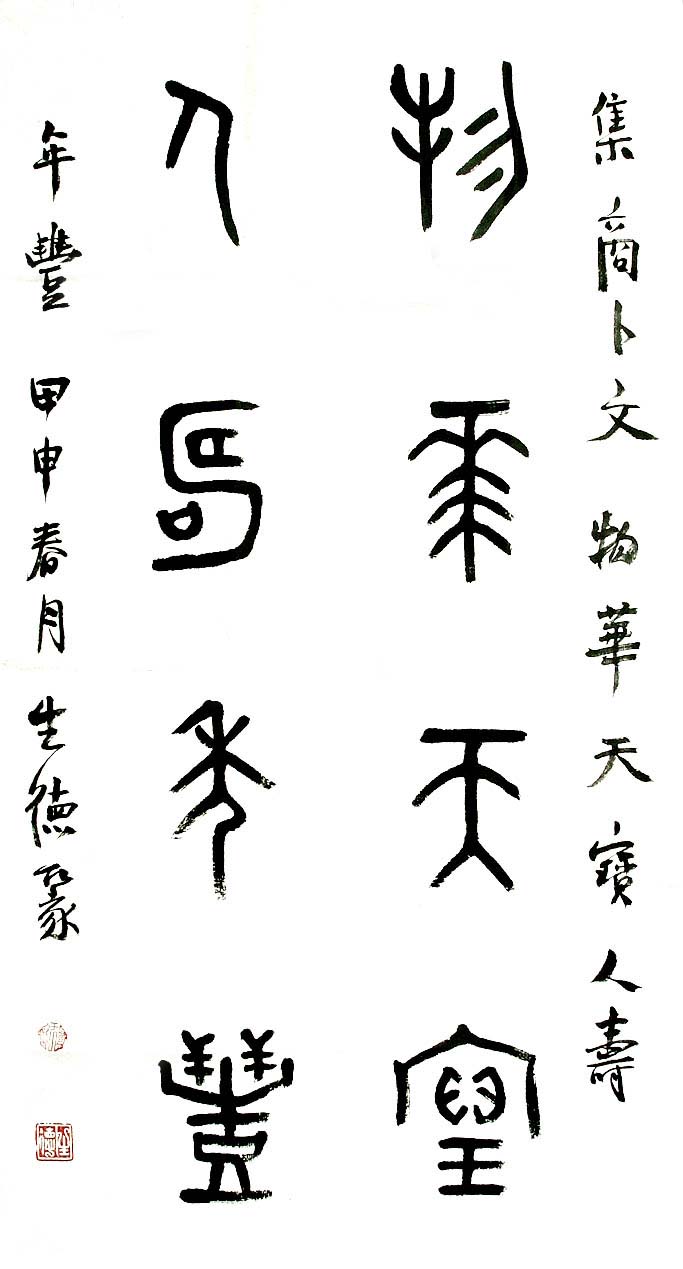 集商卜文 物華天寶人壽
物華天寶
人壽年豐
年豐 甲申春月 生德篆